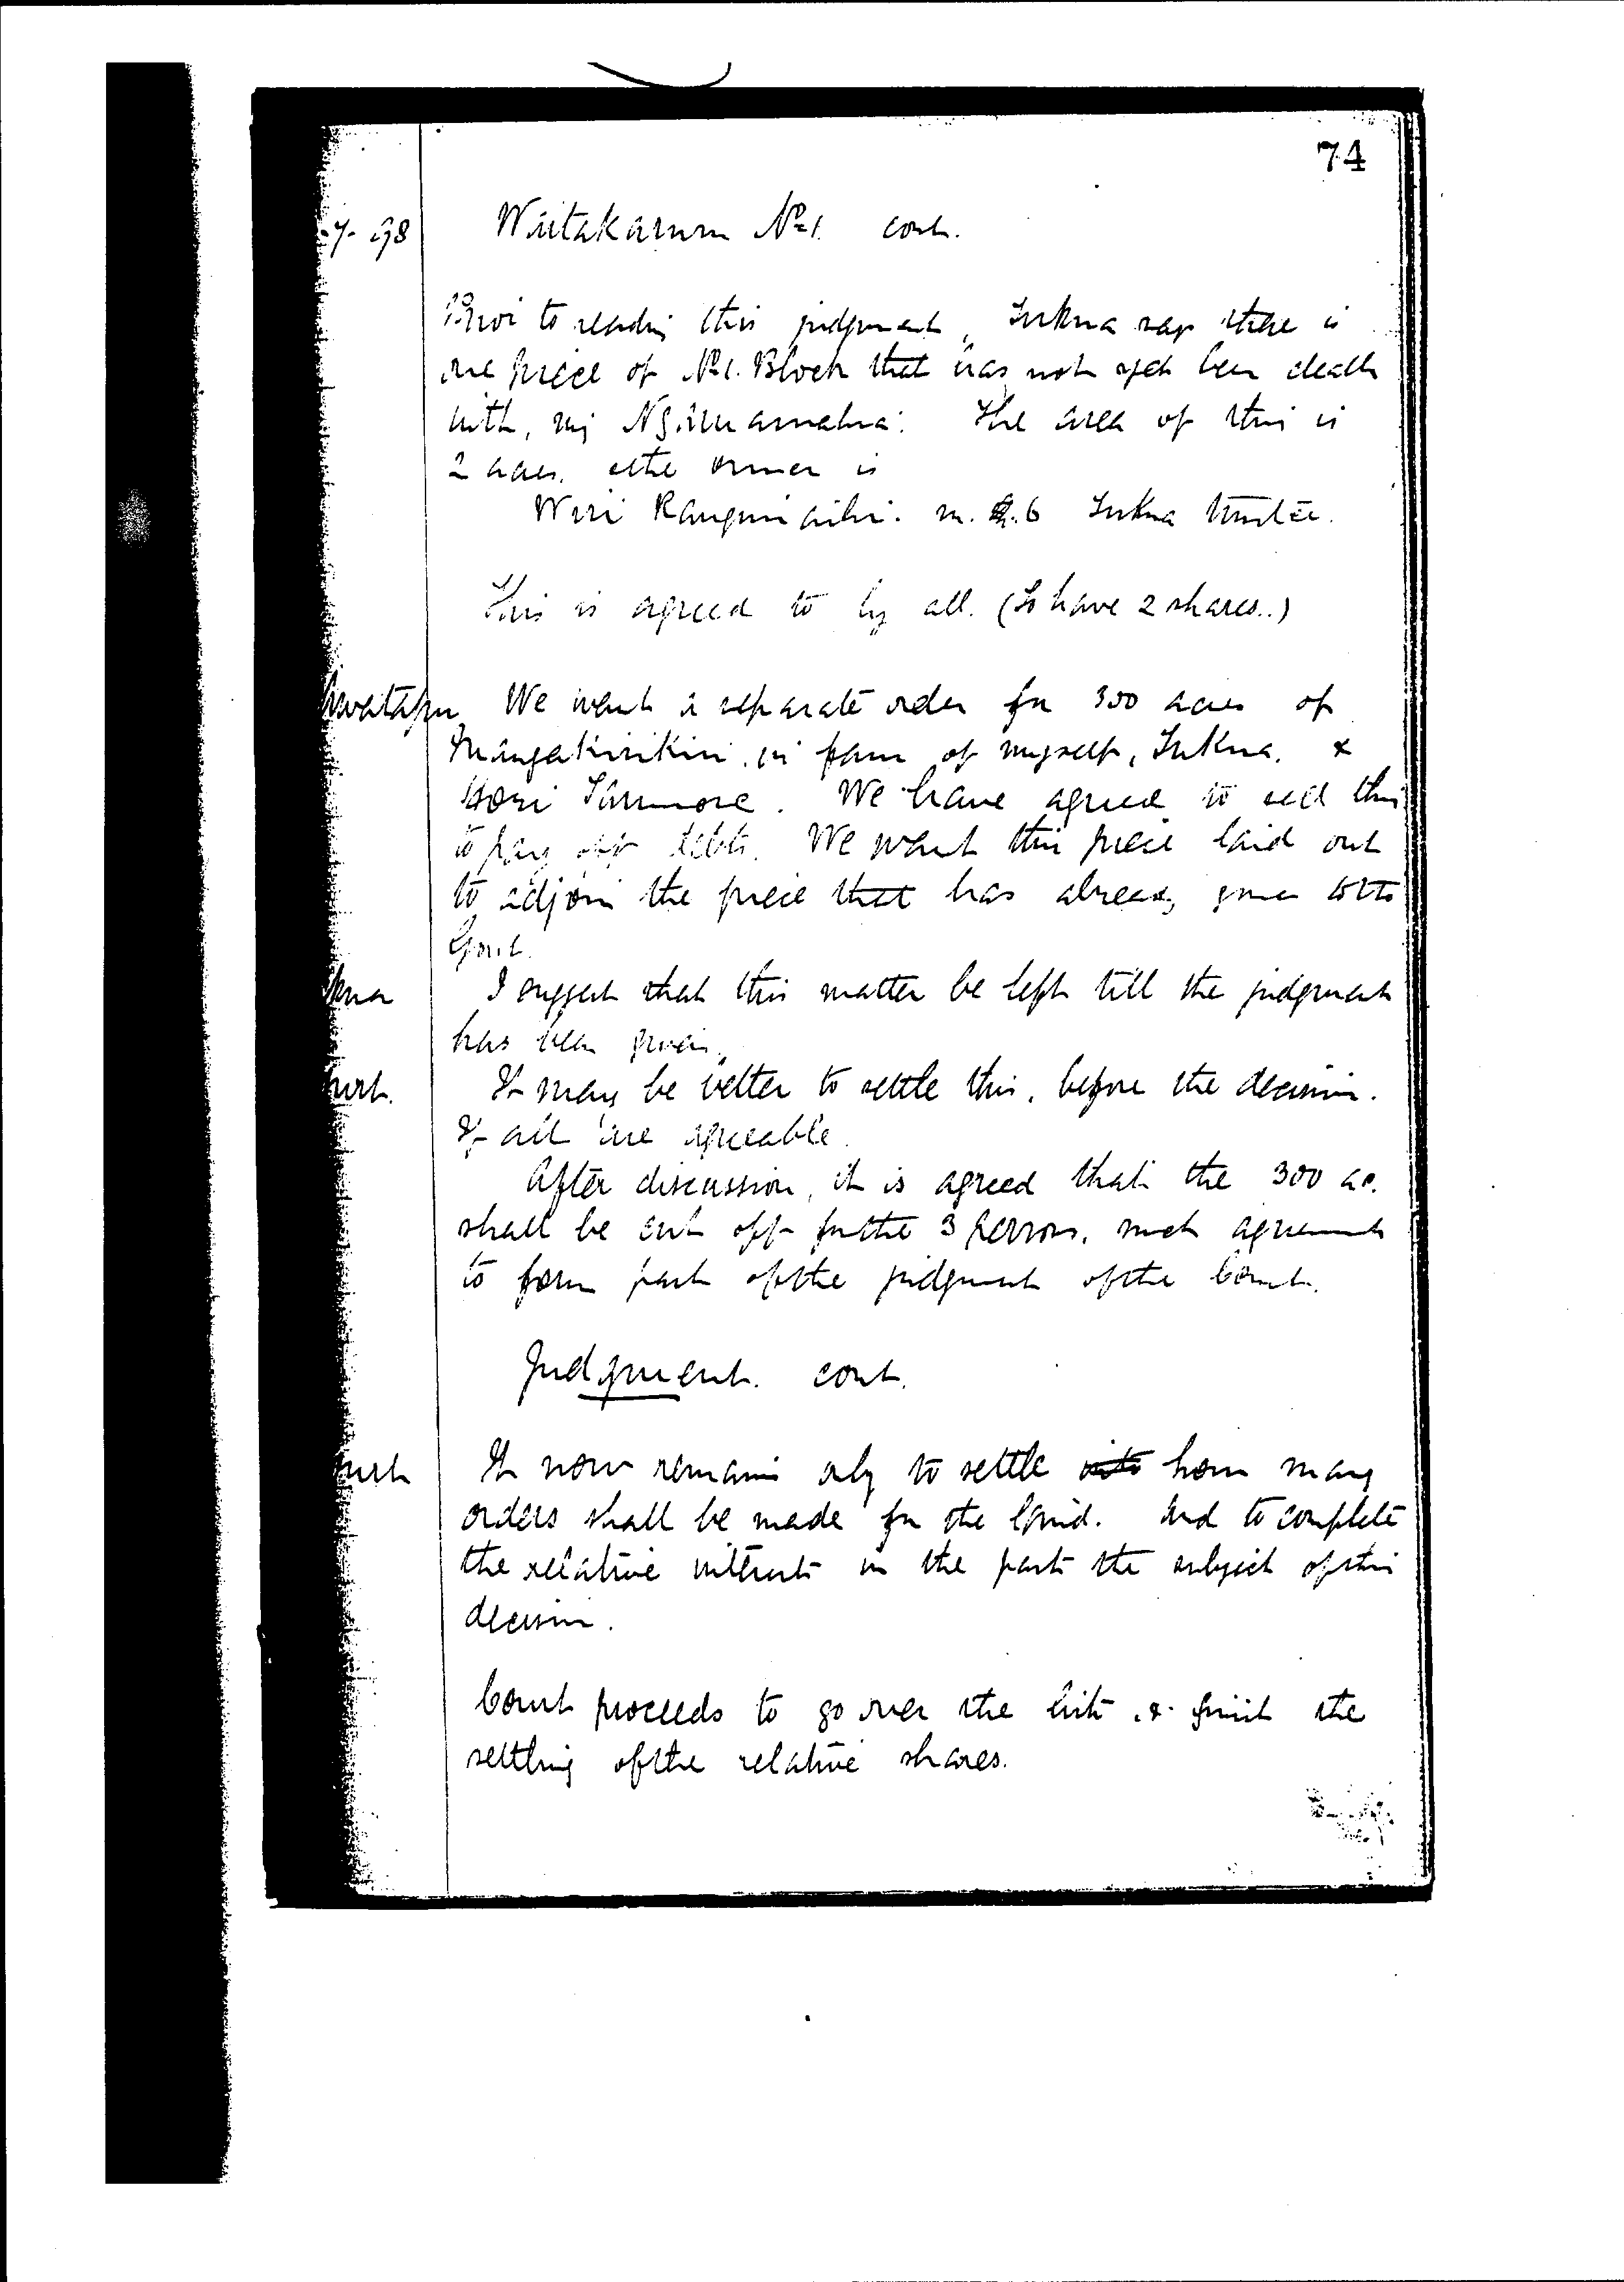 74
7. 98 Waitakaruru No 1. cont.
Prior to reading this judgment, Tukua says there is
one piece of No 1. Block that has not yet been dealt
with, viz The area of this is
2 acres. & the owner is
Wiri m. 6 Tukua trustee.
This is agreed to by all. (To have 2 shares.)
We want a separate order for 300 acres of
Mangakirikiri in favor of myself, Tukua, &
Hori We have agreed to sell this
to pay off debts. We want this piece laid out
to adjoin the piece that has already gone to the
Govt.
I suggest that this matter be left till the judgment
has been given.
It may be better to settle this, before the decision.
if all are agreeable.
After discussion, it is agreed that the 300 ac.
shall be cut off for the 3 persons, such agreement
to form part of the judgment of the Court.
Judgment. cont.
It now remains only to settle into how many
orders shall be made for the land. And to complete
the relative interests in the part the subject of this
decision.
Court proceeds to go over the lists & finish the
settling of the relative shares.